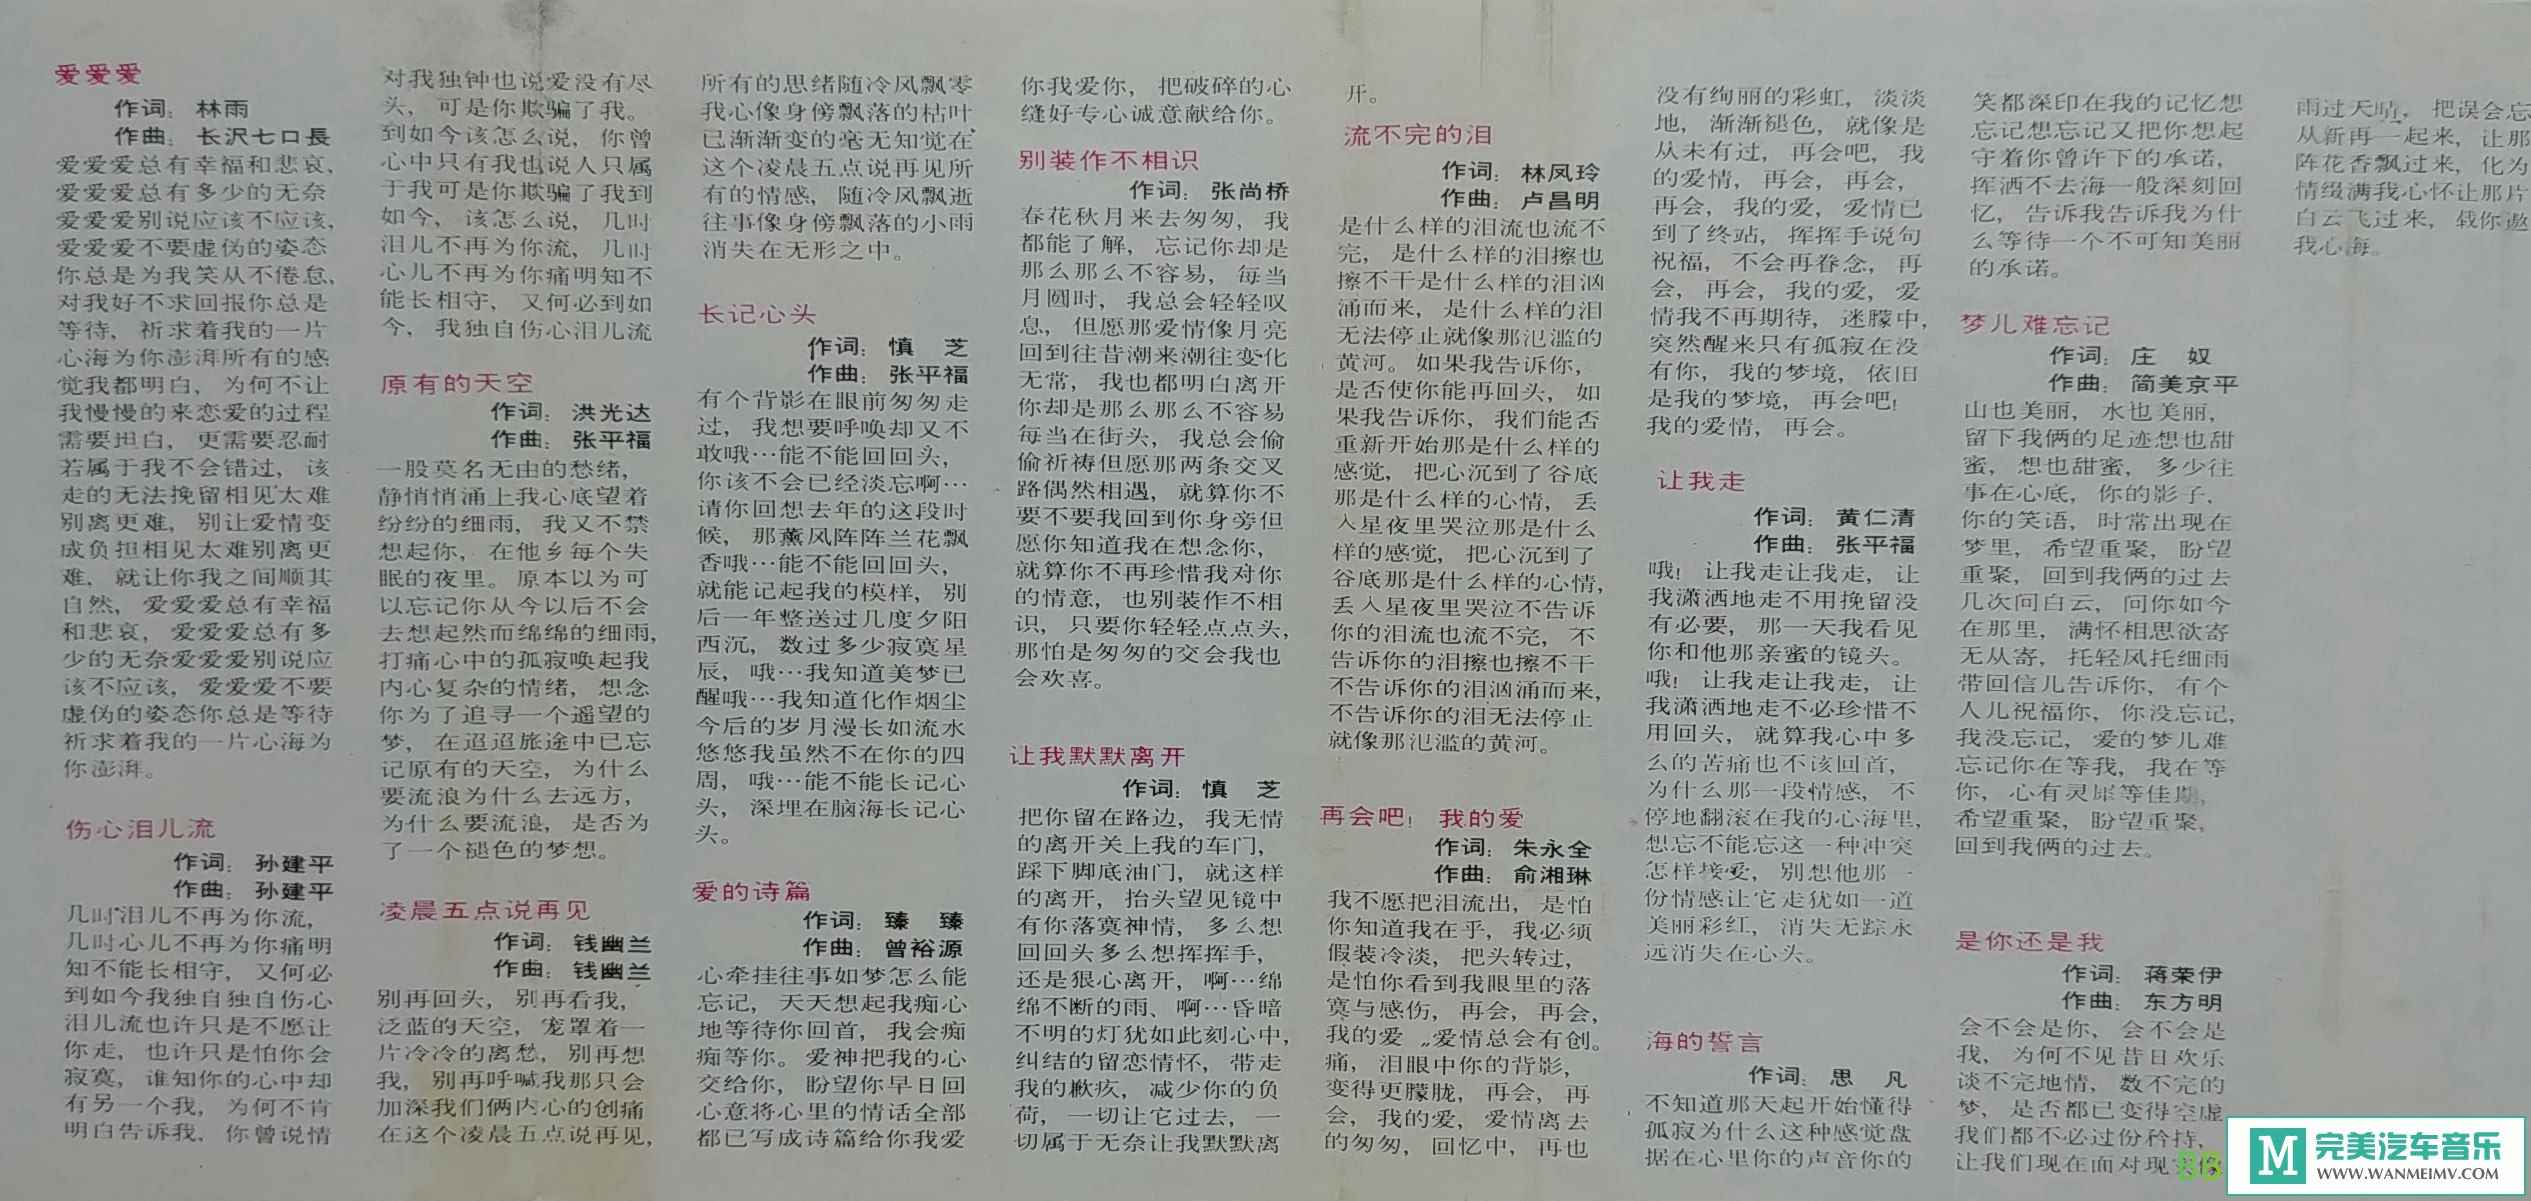 爱爱爱
作词：林雨
作曲：长沢七口長
爱爱爱总有幸福和悲哀，
爱爱爱总有多少的无奈
爱爱爱别说应该不应该，
爱爱爱不要虚伪的姿态
你总是为我笑从不倦怠，
对我好不求回报你总是
等待，祈求着我的一片
心海为你澎湃所有的感
觉我都明白，为何不让
我慢慢的来恋爱的过程
需要坦白，更需要忍耐
若属于我不会错过，该
走的无法挽留相见太难
别离更难，别让爱情变
成负担相见太难别离更
难，就让你我之间顺其
自然，爱爱爱总有幸福
和悲哀，爱爱爱总有多
少的无奈爱爱爱别说应
该不应该，爱爱爱不要
虚伪的姿态你总是等待
祈求着我的一片心海为
你澎湃。
伤心泪儿流
作词：孙建平
作曲：孙建平
几时泪儿不再为你流，
几时心儿不再为你痛明
知不能长相守，又何必
到如今我独自独自伤心
泪儿流也许只是不愿让
你走，也许只是怕你会
寂寞，谁知你的心中却
有另一个我，为何不肯
明白告诉我，你曾说情
对我独钟也说爱没有尽
头，可是你欺骗了我。
到如今该怎么说，你曾
心中只有我也说人只属
于我可是你欺骗了我到
如今，该怎么说，几时
泪儿不再为你流，几时
心儿不再为你痛明知不
能长相守，又何必到如
今，我独自伤心泪儿流
原有的天空
作词：洪光达
作曲：张平福
一股莫名无由的愁绪，
静悄悄涌上我心底望着
纷纷的细雨，我又不禁
想起你，在他乡每个失
眠的夜里。原本以为可
以忘记你从今以后不会
去想起然而绵绵的细雨，
打痛心中的孤寂唤起我
内心复杂的情绪，想念
你为了追寻一个遥望的
梦，在迢迢旅途中已忘
记原有的天空，为什么
要流浪为什么去远方，
为什么要流浪，是否为
了一个褪色的梦想。
凌晨五点说再见
作词：钱幽兰
作曲：钱幽兰
别再回头，别再看我，
泛蓝的天空，宠罩着一
片冷冷的离愁，别再想
我，别再呼喊我那只会
加深我们俩内心的创痛
在这个凌晨五点说再见，
所有的思绪随冷风飘零
我心像身傍飘落的枯叶
已渐渐变的毫无知觉在
这个凌晨五点说再见所
有的情感，随冷风飘逝
往事像身傍飘落的小雨
消失在无形之中。
长记心头
作词：慎　芝
作曲：张平福
有个背影在眼前匆匆走
过，我想要呼唤却又不
敢哦…能不能回回头，
你该不会已经淡忘啊…
请你回想去年的这段时
候，那薰风阵阵兰花飘
香哦…能不能回回头，
就能记起我的模样，别
后一年整送过几度夕阳
西沉，数过多少寂寞星
辰，哦…我知道美梦已
醒哦…我知道化作烟尘
今后的岁月漫长如流水
悠悠我虽然不在你的四
周，哦…能不能长记心
头，深埋在脑海长记心
头。
爱的诗篇
作词：臻　臻
作曲：曾裕源
心牵挂往事如梦怎么能
忘记，天天想起我痴心
地等待你回首，我会痴
痴等你。爱神把我的心
交给你，盼望你早日回
心意将心里的情话全部
都已写成诗篇给你我爱
你我爱你，把破碎的心
缝好专心诚意献给你。
别装作不相识
作词：张尚桥
春花秋月来去匆匆，我
都能了解，忘记你却是
那么那么不容易，每当
月圆时，我总会轻轻叹
息，但愿那爱情像月亮
回到往昔潮来潮往变化
无常，我也都明白离开
你却是那么那么不容易
每当在街头，我总会偷
偷祈祷但愿那两条交叉
路偶然相遇，就算你不
要不要我回到你身旁但
愿你知道我在想念你，
就算你不再珍惜我对你
的情意，也别装作不相
识，只要你轻轻点点头，
那怕是匆匆的交会我也
会欢喜。
让我默默离开
作词：慎　芝
把你留在路边，我无情
的离开关上我的车门，
踩下脚底油门，就这样
的离开，抬头望见镜中
有你落寞神情，多么想
回回头多么想挥挥手，
还是狠心离开，啊…绵
绵不断的雨、啊…昏暗
不明的灯犹如此刻心中，
纠结的留恋情怀，带走
我的歉疚，减少你的负
荷，一切让它过去，一
切属于无奈让我默默离
开。
流不完的泪
作词：林凤玲
作曲：卢昌明
是什么样的泪流也流不
完，是什么样的泪擦也
擦不干是什么样的泪汹
涌而来，是什么样的泪
无法停止就像那氾滥的
黄河。如果我告诉你，
是否使你能再回头，如
果我告诉你，我们能否
重新开始那是什么样的
感觉，把心沉到了谷底
那是什么样的心情，丢
入星夜里哭泣那是什么
样的感觉，把心沉到了
谷底那是什么样的心情，
丢入星夜里哭泣不告诉
你的泪流也流不完，不
告诉你的泪擦也擦不干
不告诉你的泪汹涌而来，
不告诉你的泪无法停止
就像那氾滥的黄河。
再会吧！我的爱
作词：朱永全
作曲：俞湘琳
我不愿把泪流出，是怕
你知道我在乎，我必须
假装冷淡，把头转过，
是怕你看到我眼里的落
寞与感伤，再会，再会，
我的爱〞爱情总会有创。
痛，泪眼中你的背影，
变得更朦胧，再会，再
会，我的爱，爱情离去
的匆匆，回忆中，再也
没有绚丽的彩虹，淡淡
地，渐渐褪色，就像是
从未有过，再会吧，我
的爱情，再会，再会，
再会，我的爱，爱情已
到了终站，挥挥手说句
祝福，不会再眷念，再
会，再会，我的爱，爱
情我不再期待，迷朦中，
突然醒来只有孤寂在没
有你，我的梦境，依旧
是我的梦境，再会吧！
我的爱情，再会。
让我走
作词：黄仁清
作曲：张平福
哦！让我走让我走，让
我潇洒地走不用挽留没
有必要，那一天我看见
你和他那亲蜜的镜头。
哦！让我走让我走，让
我潇洒地走不必珍惜不
用回头，就算我心中多
么的苦痛也不该回首，
为什么那一段情感，不
停地翻滚在我的心海里，
想忘不能忘这一种冲突
怎样接爱，别想他那一
份情感让它走犹如一道
美丽彩红，消失无踪永
远消失在心头。
海的誓言
作词：思　凡
不知道那天起开始懂得
孤寂为什么这种感觉盘
据在心里你的声音你的
笑都深印在我的记忆想
忘记想忘记又把你想起
守着你曾许下的承诺，
挥洒不去海一般深刻回
忆，告诉我告诉我为什
么等待一个不可知美丽
的承诺。
梦儿难忘记
作词：庄　奴
作曲：简美京平
山也美丽，水也美丽，
留下我俩的足迹想也甜
蜜，想也甜蜜，多少往
事在心底，你的影子，
你的笑语，时常出现在
梦里，希望重聚，盼望
重聚，回到我俩的过去
几次问白云，问你如今
在那里，满怀相思欲寄
无从寄，托轻风托细雨
带回信儿告诉你，有个
人儿祝福你，你没忘记，
我没忘记，爱的梦儿难
忘记你在等我，我在等
你，心有灵犀等佳期，
希望重聚，盼望重聚，
回到我俩的过去。
是你还是我
作词：蒋荣伊
作曲：东方明
会不会是你，会不会是
我，为何不见昔日欢乐
谈不完地情，数不完的
梦，是否都已变得空虚
我们都不必过份矜持，
让我们现在面对现
雨过天晴，把误会忘
从新再一起来，让那
阵花香飘过来，化为
情缀满我心怀让那片
白云飞过来，载你遨
我心海。
BB
M 完美汽车音乐
WWW.WANMEIMV.COM